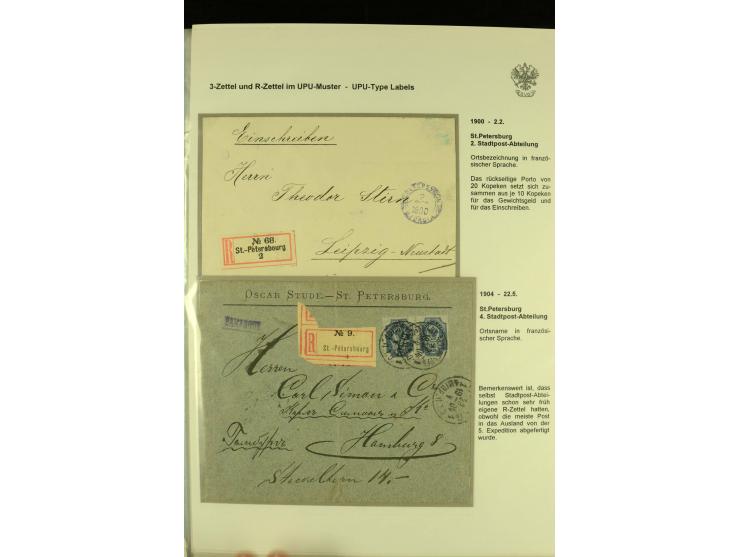 3-Zettel und R-Zettel im UPU-Muster - UPU-Type Labels
1900 - 2.2.
St.Petersburg
2. Stadtpost-Abteilung
Ortsbezeichnung in franzö-
sischer Sprache.
Das rückseitige Porto von
20 Kopeken setzt sich zu-
sammen aus je 10 Kopeken
für das Gewichtsgeld und
für das Einschreiben.
Einschreiben
Herrn
Theodor Stirn
Leipzig-Neustadt
R
№ 68.
St.-Pétersbourg
2
1904 - 22.5.
St.Petersburg
4. Stadtpost-Abteilung
Ortsname in französi-
scher Sprache.
Bemerkenswert ist, dass
selbst Stadtpost-Abtei-
lungen schon sehr früh
eigene R-Zettel hatten,
obwohl die meiste Post
in das Ausland von der
5. Expedition abgefertigt
wurde.
OSCAR STUDE.—ST. PETERSBURG.
R
№ 9.
St.-Pétersbourg
4
Herren
Carl Simon & Co
Hamburg 8
14.-